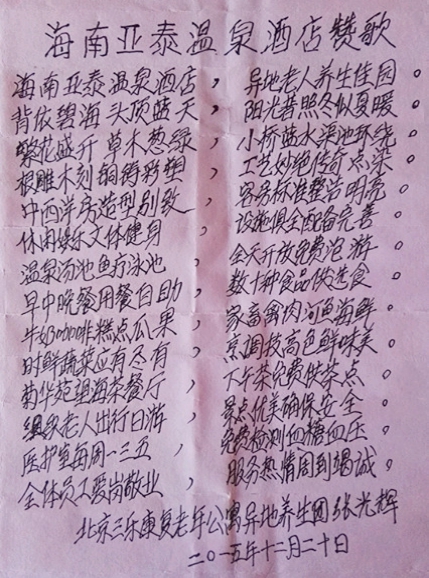 海南亚泰温泉酒店赞歌
海南亚泰温泉酒店，异地老人养生佳园。
背依碧海头顶蓝天，阳光普照冬似夏暖。
繁花盛开草木葱绿，小桥蓝水渠池环绕。
根雕木刻铜铸彩塑，工艺妙绝传奇点染。
中西洋房造型别致，客房标准整洁明亮。
休闲娱乐文体健身，设施俱全配备完善。
温泉汤池鱼疗泳池，全天开放免费泡游。
早中晚餐用餐自助，数十种食品供选食。
牛奶咖啡糕点瓜果，家畜禽肉河鱼海鲜。
时鲜蔬菜应有尽有，烹调技高色鲜味美。
菊华苑望海茶餐厅，下午茶免费供茶点。
组织老人出行日游，景点优美确保安全。
医护室每周一三五，免费检测血糖血压。
全体员工爱岗敬业，服务热情周到竭诚。
北京三乐康复老年公寓异地养生团张光辉
二〇一五年十二月二十日